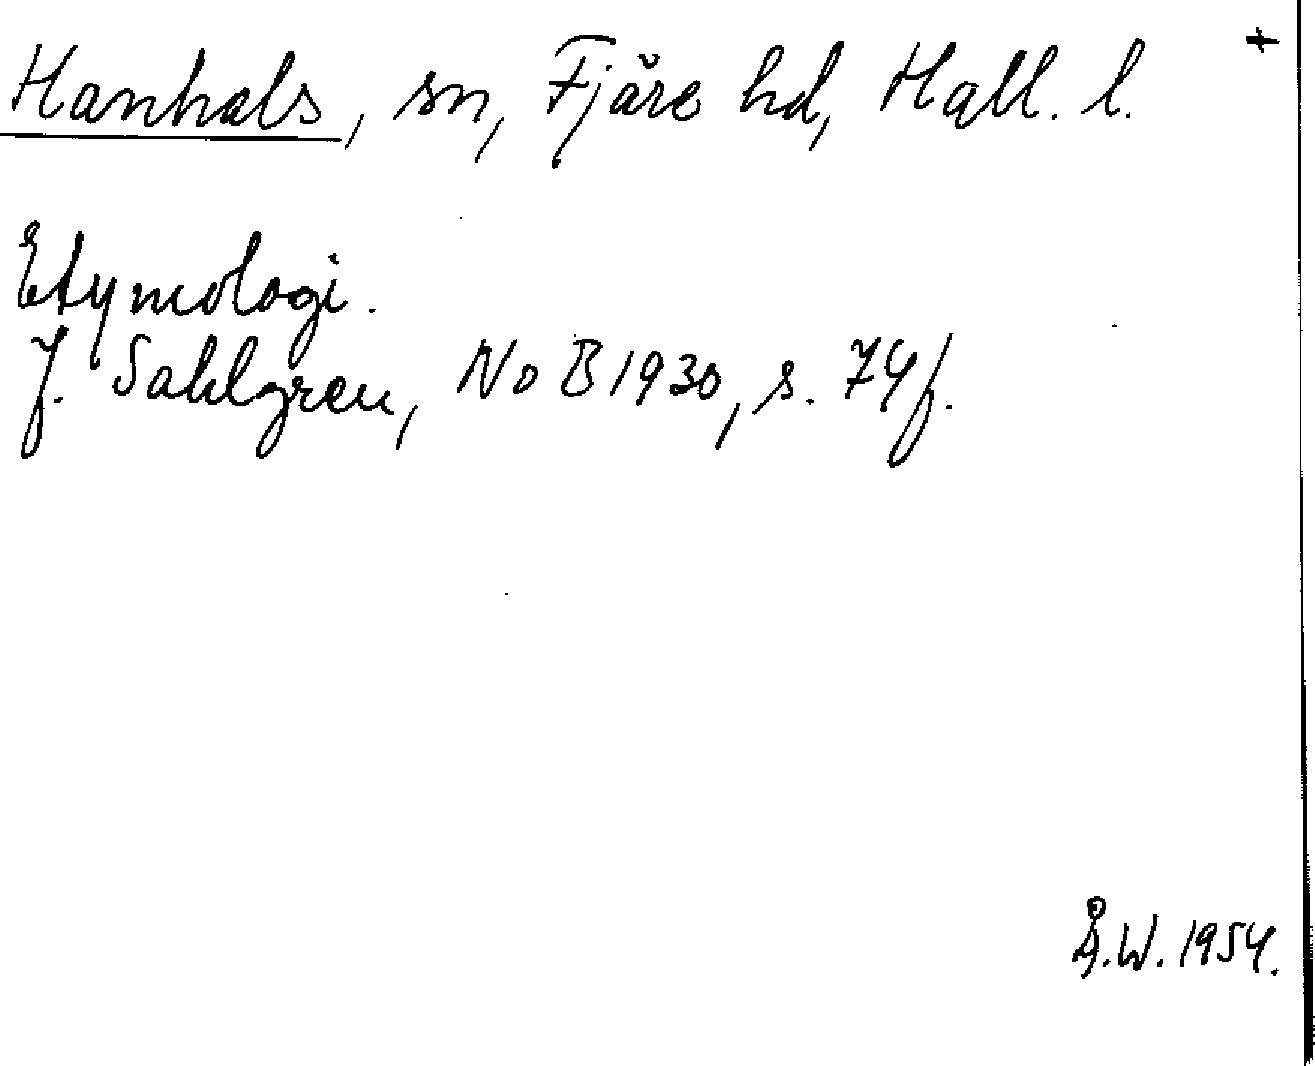 Hanhals, sn, Fjäre hd, Hall. l. +
Etymologi.
J. Sahlgren, NoB 1930, s. 74f.
Å.W. 1954.